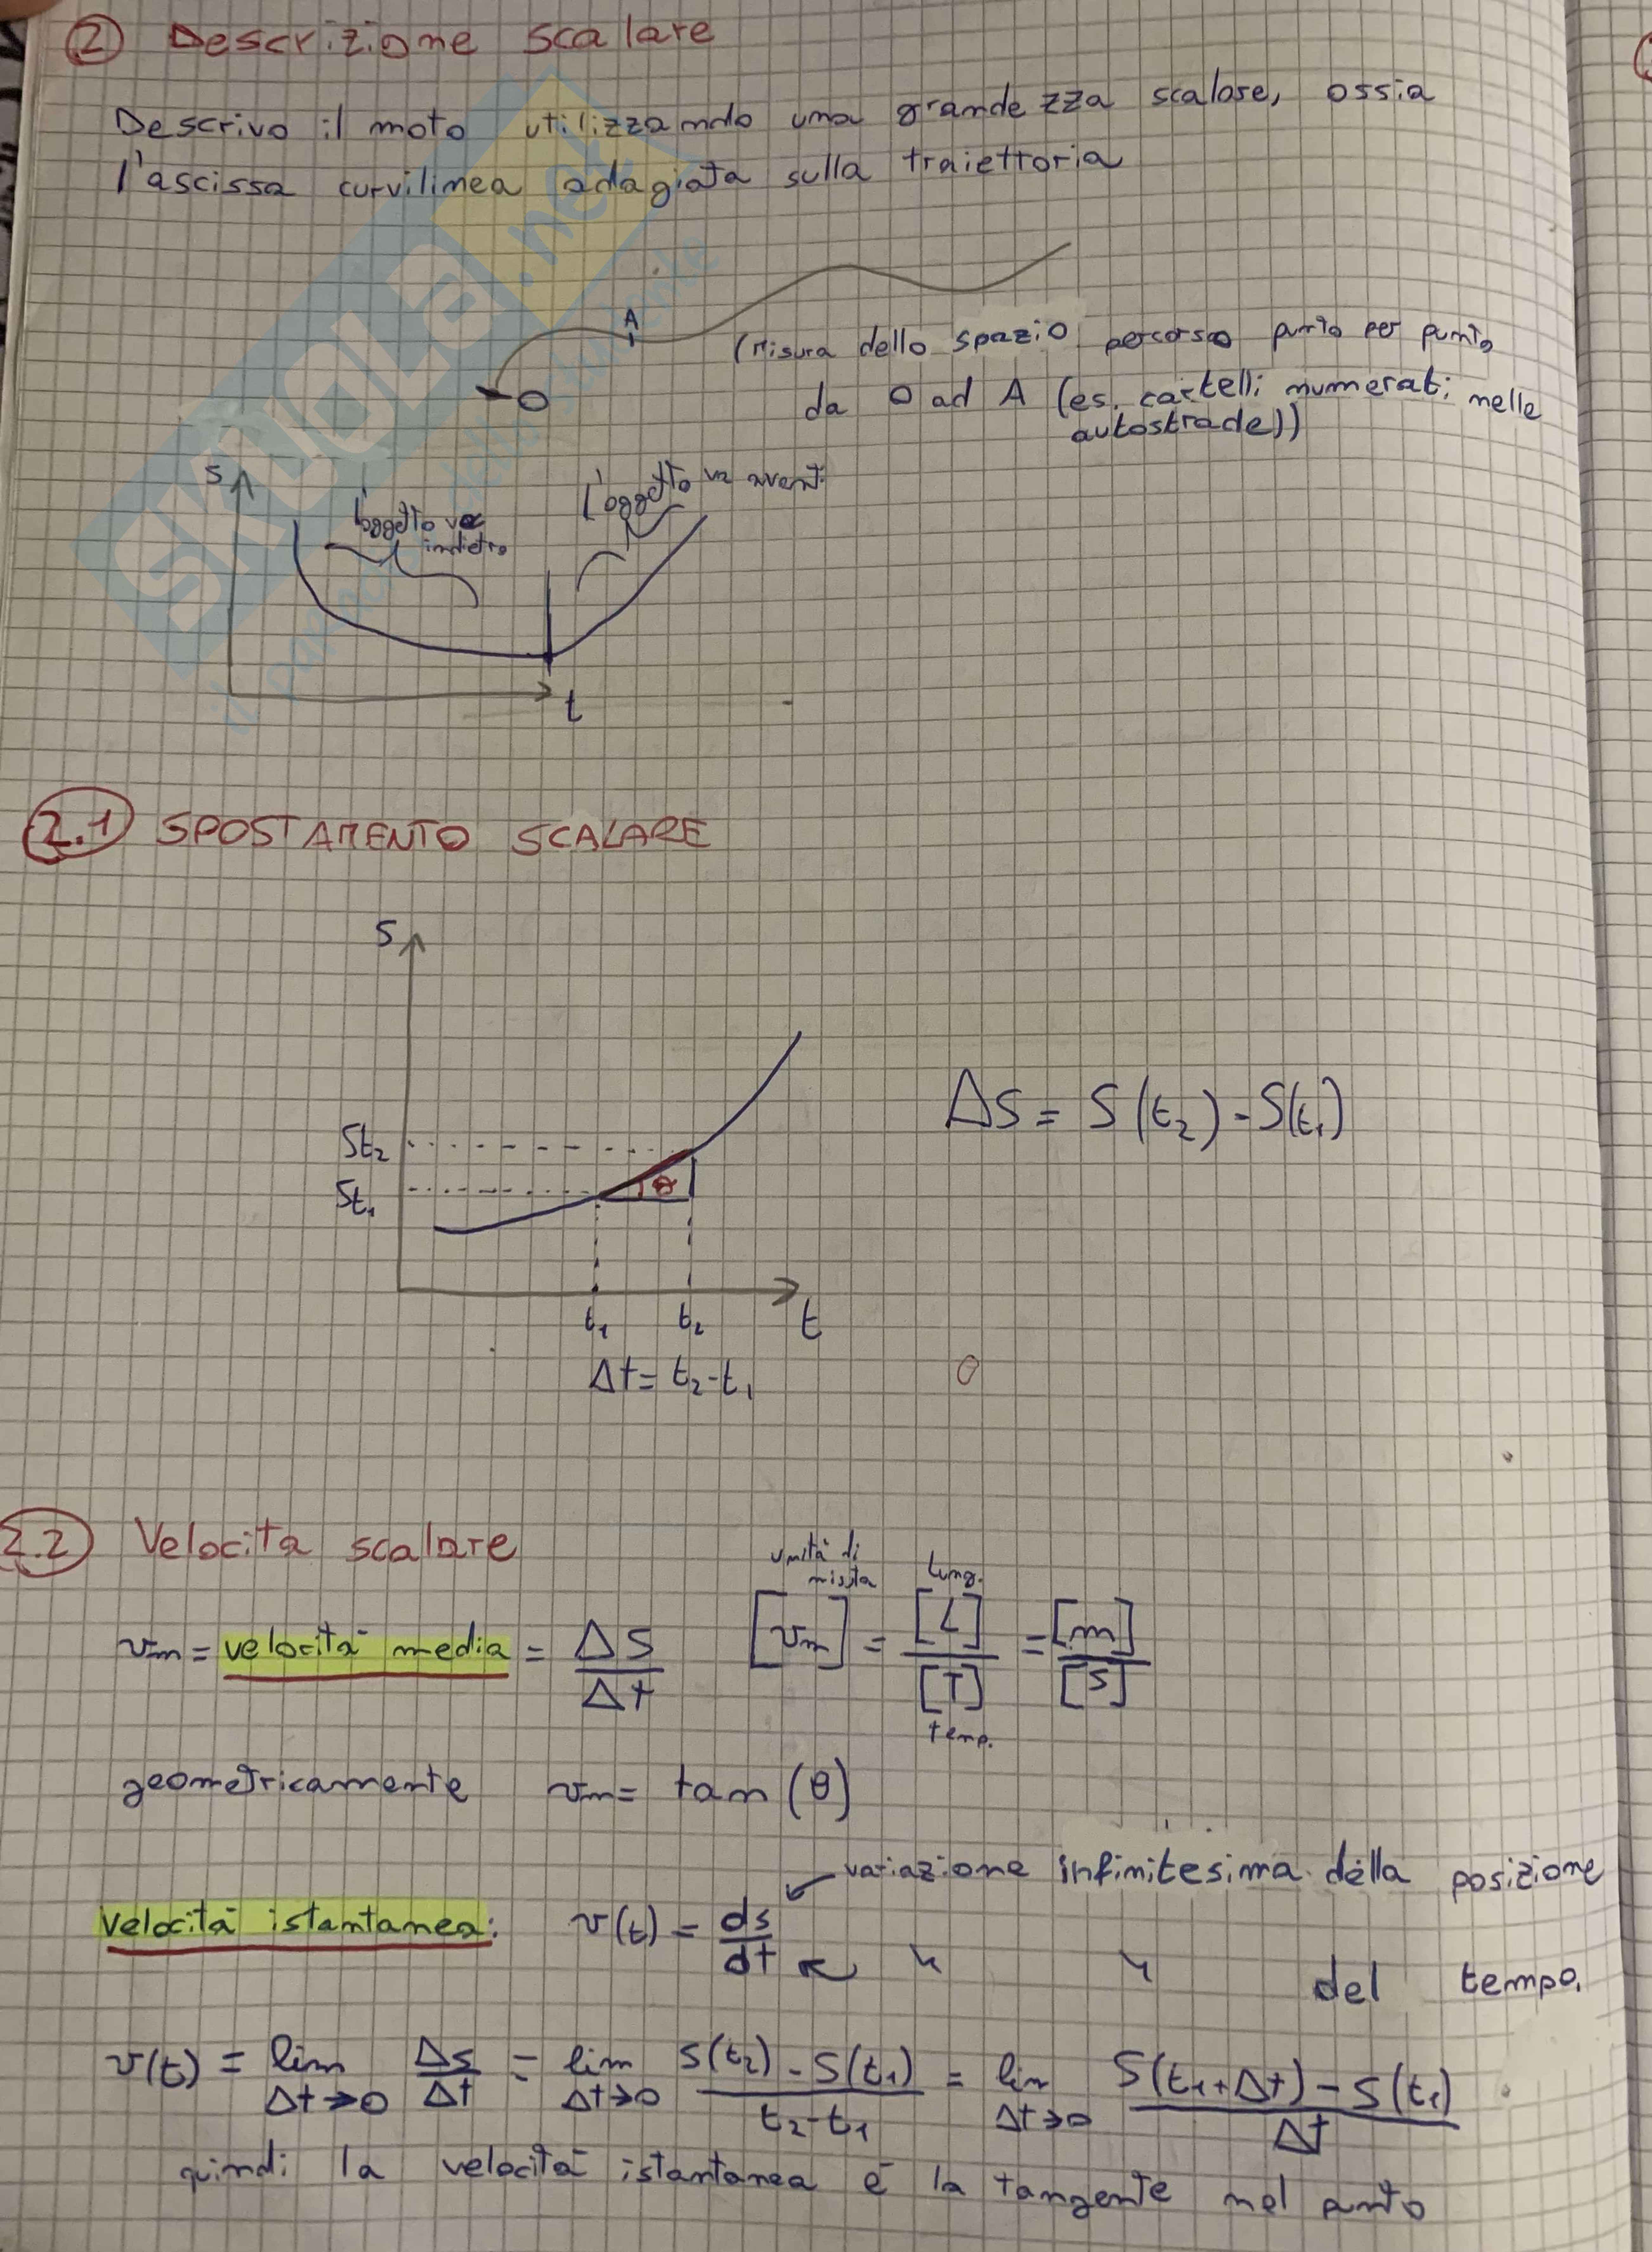 2 Descrizione scalare
Descrivo il moto utilizzando una grandezza scalare, ossia
l'ascissa curvilinea adagiata sulla traiettoria
A
O
(Misura dello spazio percorso punto per punto
da O ad A (es. cartelli numerati nelle
autostrade))
S
L'oggetto va
indietro
L'oggetto va avanti
t
SKUOLA.net
il paradiso dello studente
2.1 SPOSTAMENTO SCALARE
S
St₂
St₁
θ
t₁ t₂ t
Δt = t₂-t₁
ΔS = S(t₂) - S(t₁)
θ
2.2 Velocità scalare
unità di
lung.
vm = velocità media = ΔS/Δt [vm] = [L]/[T] = [m]/[S]
temp.
geometricamente vm = tan(θ)
variazione infinitesima della posizione
velocità istantanea: v(t) = ds/dt
" " del tempo.
v(t) = lim Δt→0 Δs/Δt = lim Δt→0 S(t₂) - S(t₁)/t₂-t₁ = lim Δt→0 S(t₁+Δt) - S(t₁)/Δt
quindi la velocità istantanea è la tangente nel punto